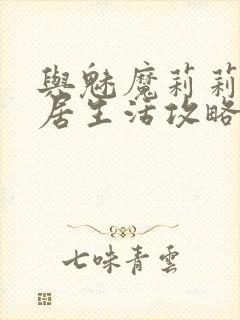 與魅魔莉莉
居生活攻略
七味青雲